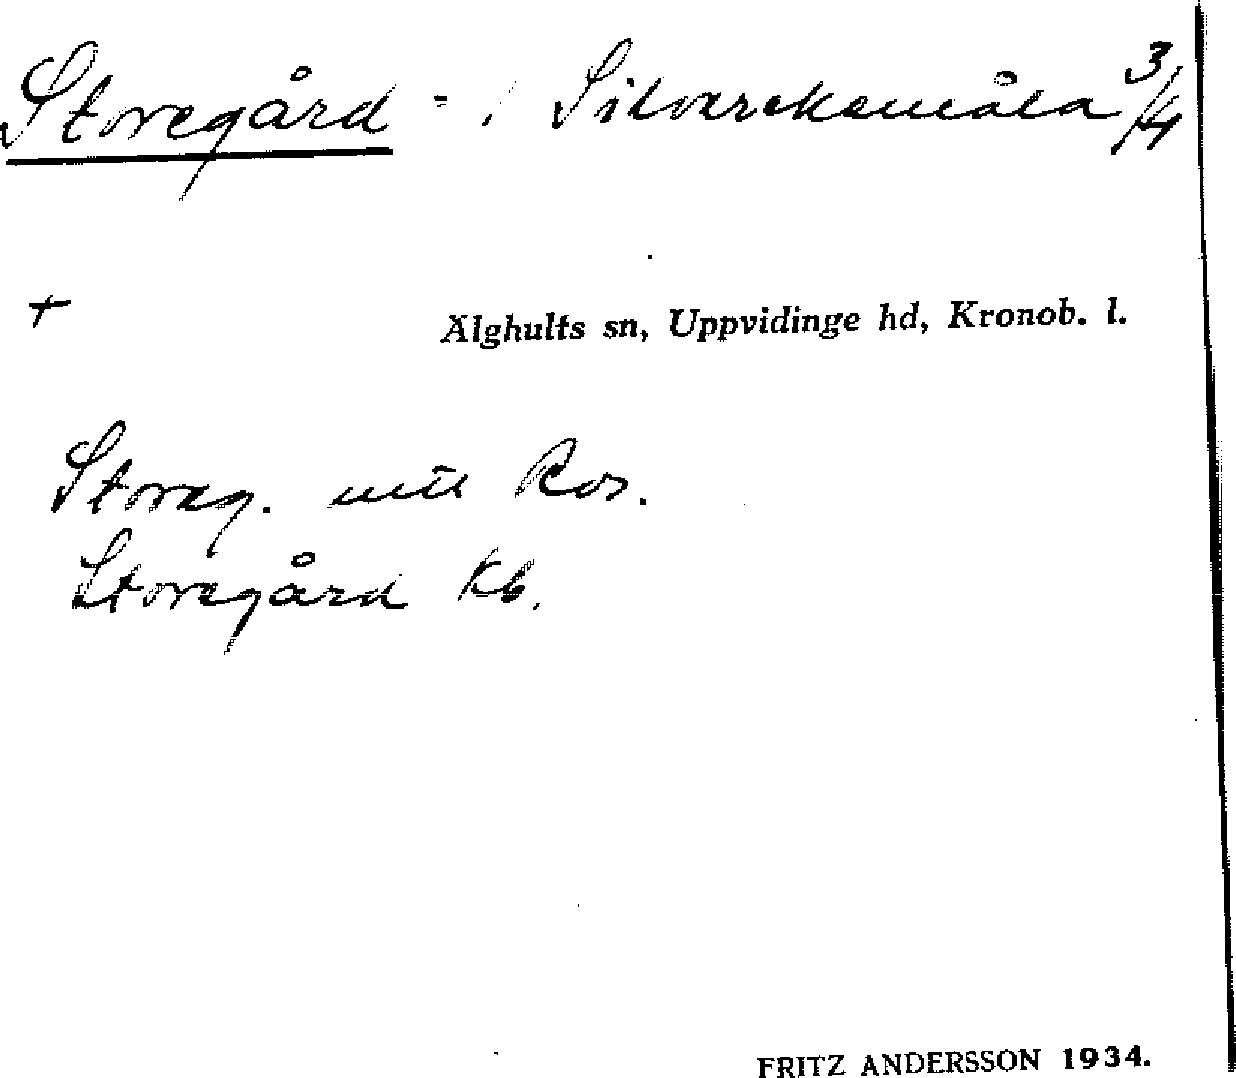 Storegård = i Silverekemåla 3/4
+
Älghults sn, Uppvidinge hd, Kronob. l.
Storeg. mtl Ros.
Storegård Kb.
FRITZ ANDERSSON 1934.